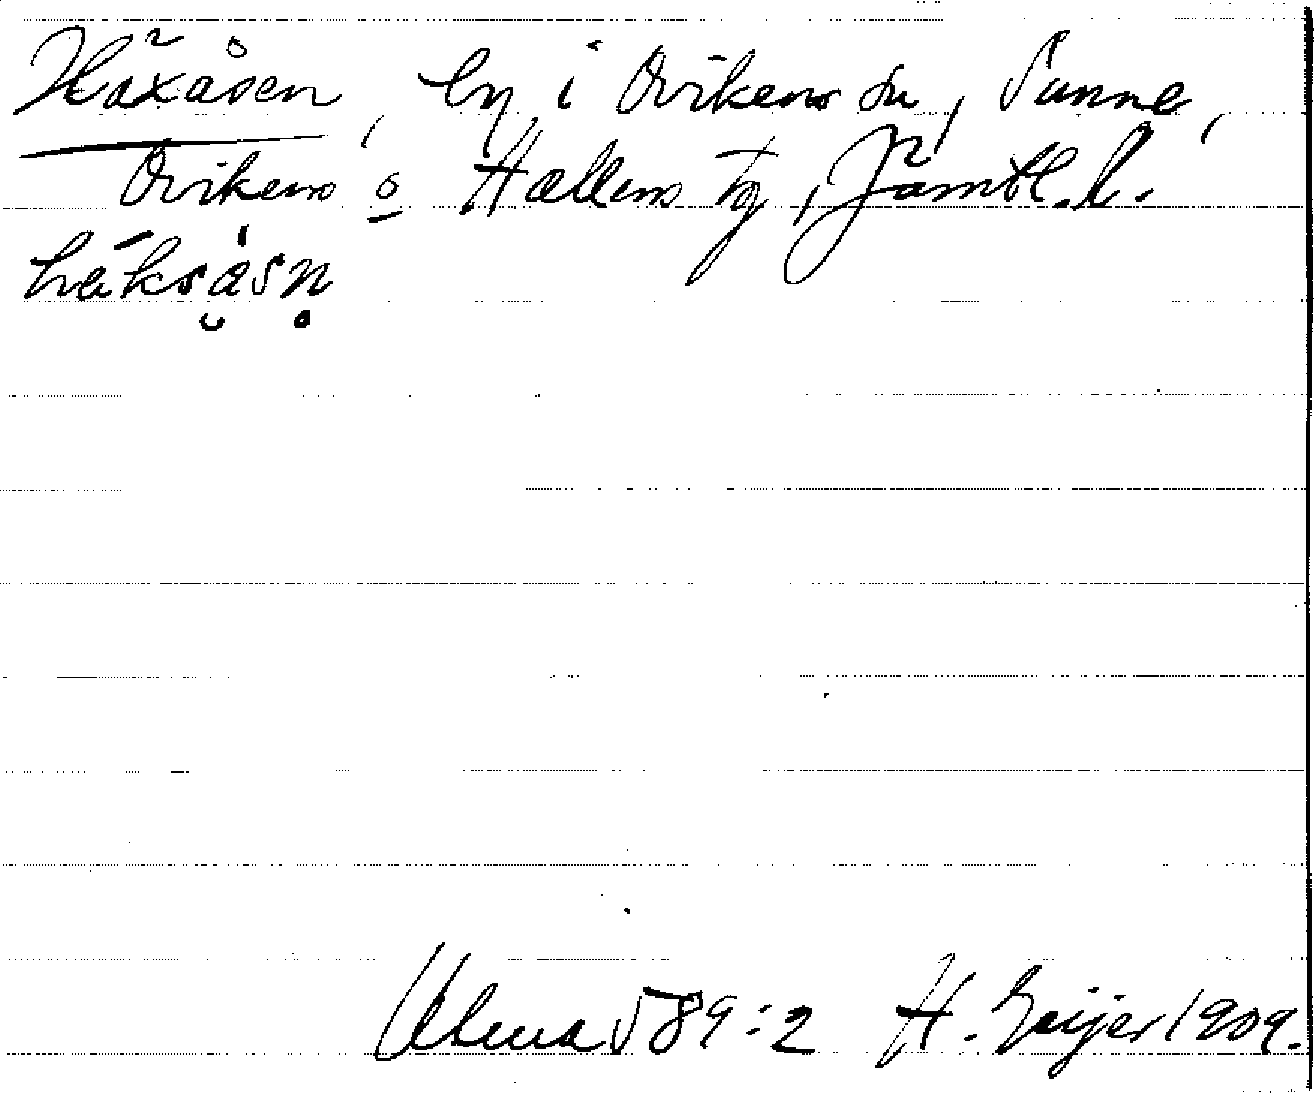 Häxåsen, by i Ovikens sn, Sunne,
Ovikens o Hallens tg, Jämtl. l.
häksåsn
Ulma 589:2 H. Geijer 1909.